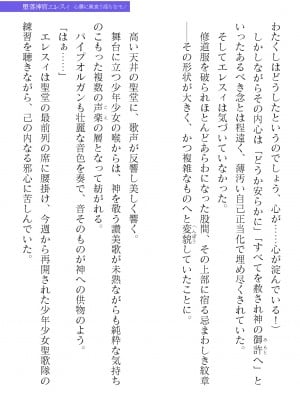 堕落神官エレスィ 心臓に巣食う淫らなモノ
わたくしはどうしたというのでしょう、心が……心が淀んでいる！）
しかしながらその内心は「どうか安らかに」「すべてを赦され神の御許へ」と
いったあるべき念とは程遠く、薄汚い自己正当化で埋め尽くされていた。
そしてエレスィは気づいていなかった。
修道服を破られほとんどあらわになった股間、その上部に宿る忌まわしき紋章
――その形状が大きく、かつ複雑なものへと変貌していたことに。
高い天井の聖堂に、歌声が反響し美しく響く。
舞台に立つ少年少女の喉からは、神を敬う讃美歌が未熟ながらも純粋な気持ち
のこもった複数の声楽の層となって紡がれる。
パイプオルガンも壮麗な音色を奏で、音そのものが神への供物のよう。
「はぁ……」
エレスィは聖堂の最前列の席に腰掛け、今週から再開された少年少女聖歌隊の
練習を聴きながら、己の内なる邪心に苦しんでいた。